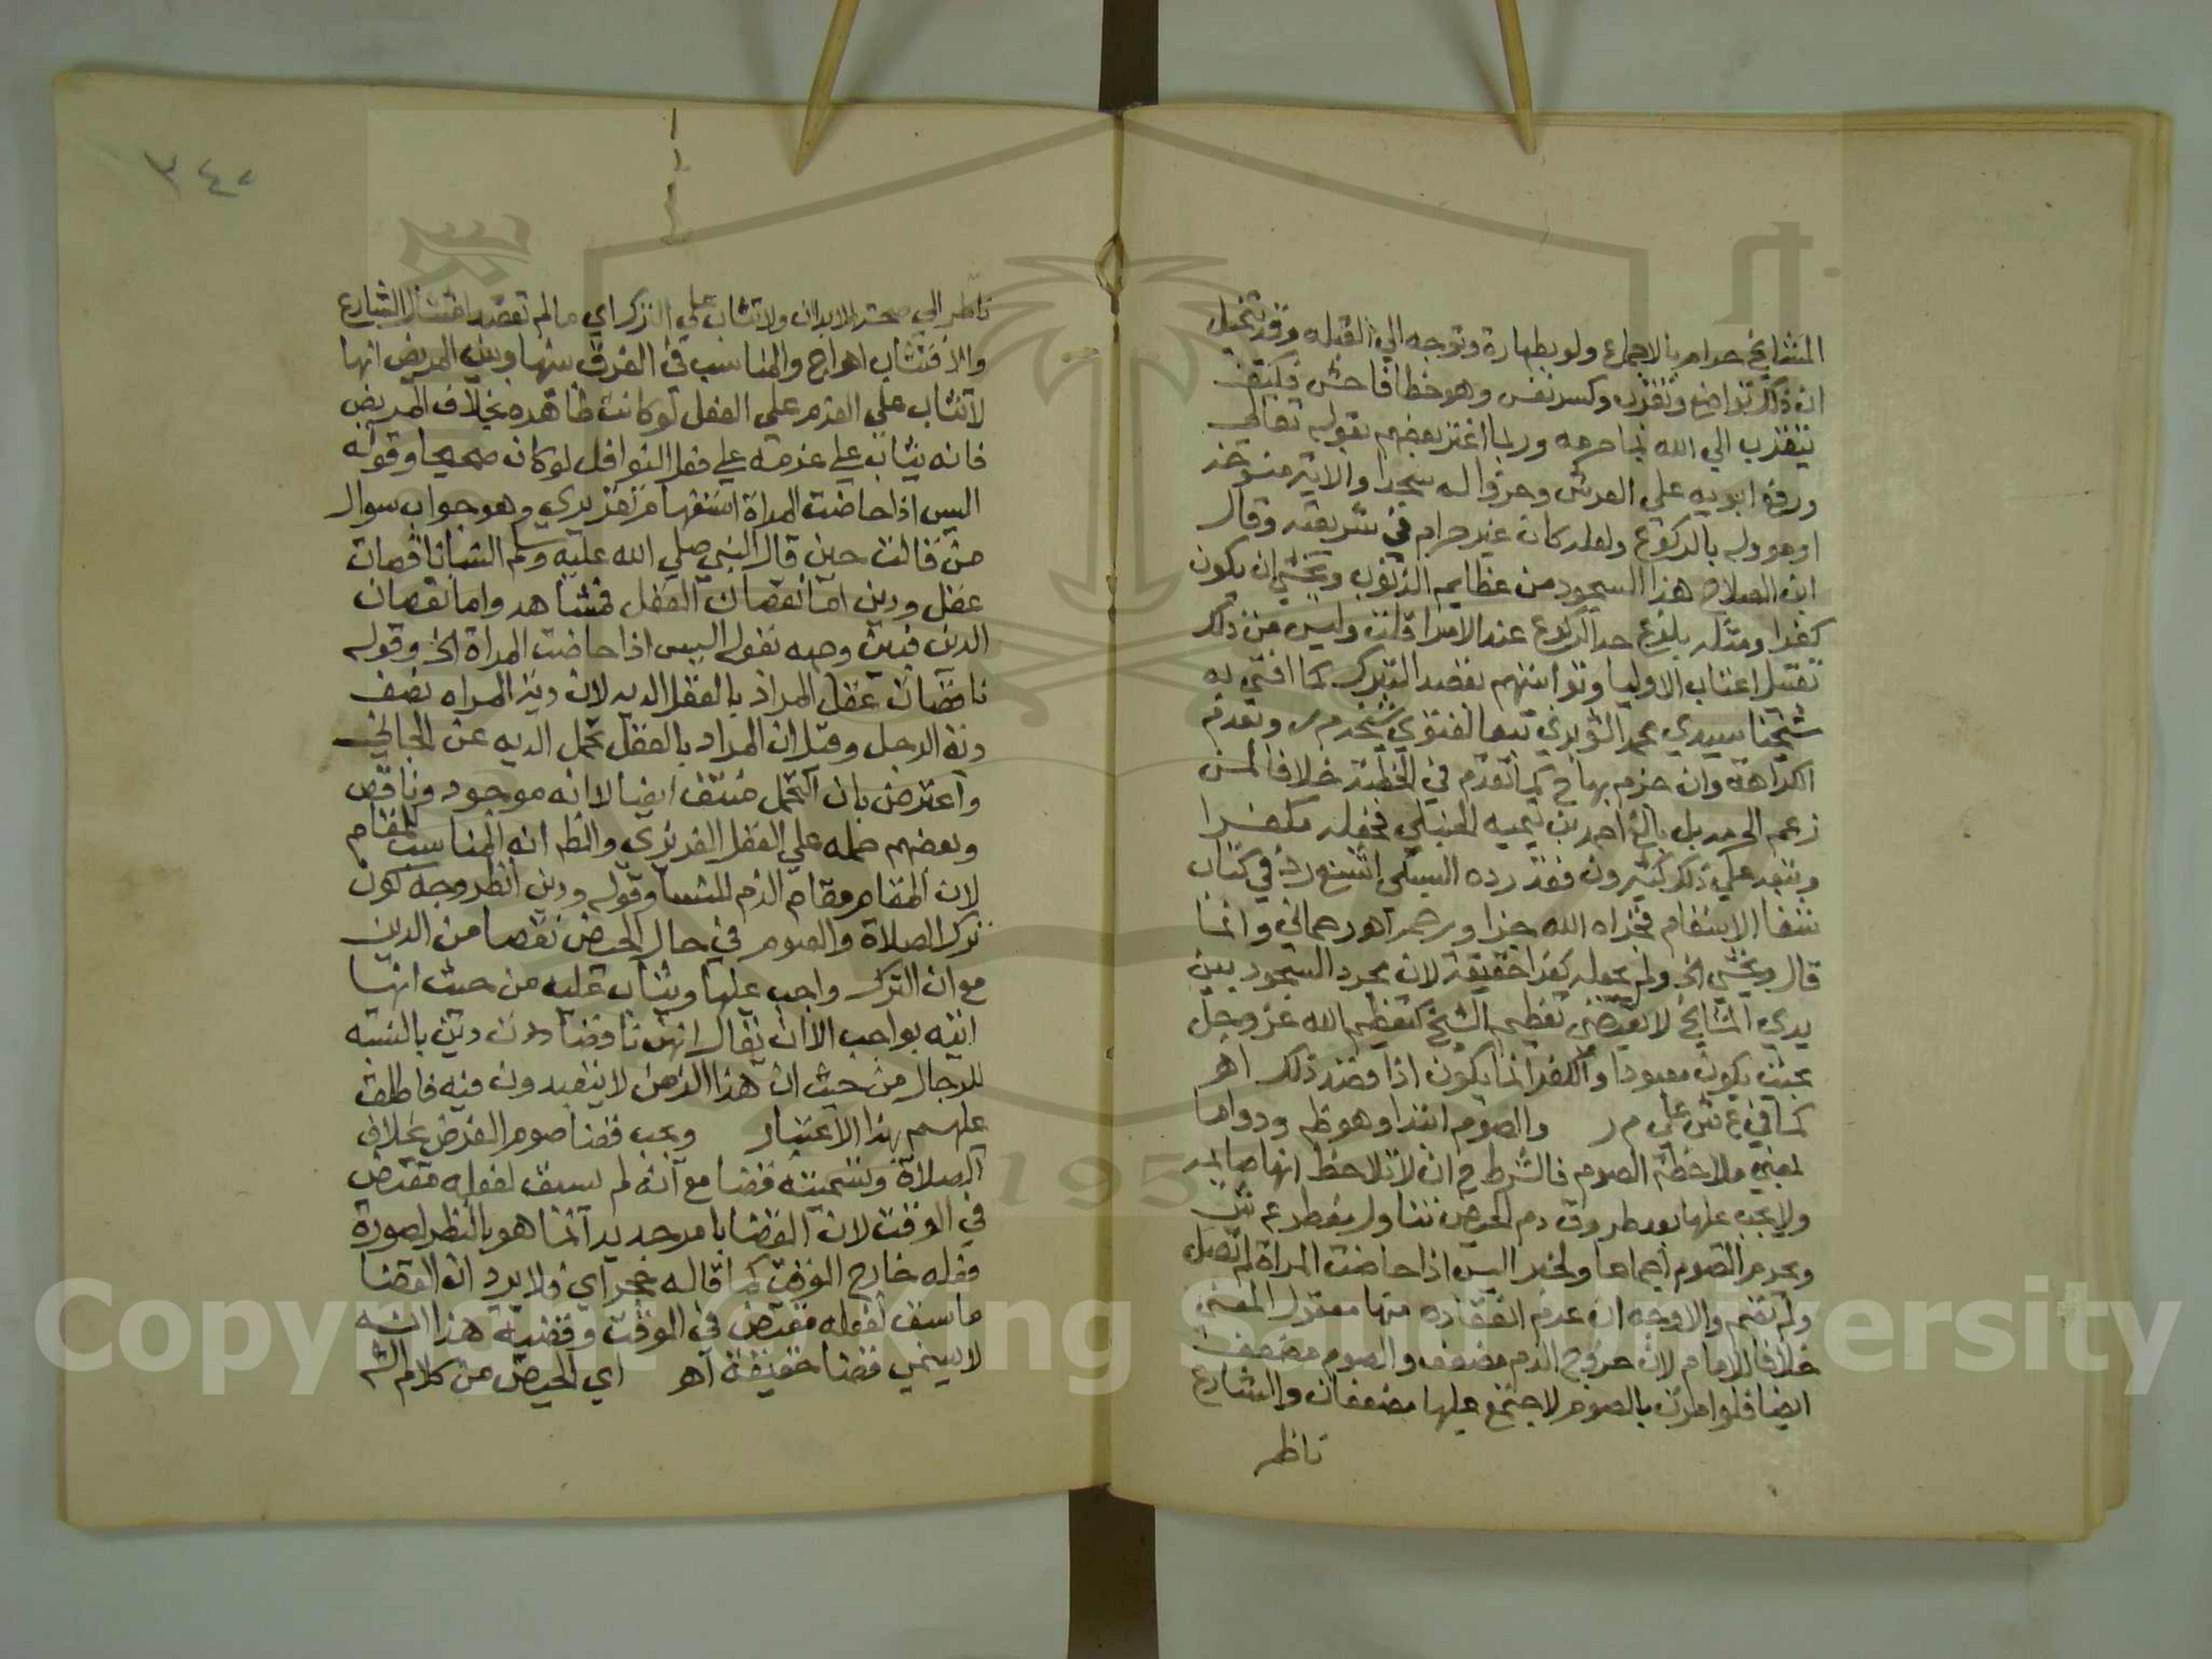 المشايخ حرام بالاجماع ولو بطهارة وتوجه الي القبله وقد يتخيل
ان ذلك تواضع وتقرب وكسر نفس وهو خطا فاحش فكيف
يتقرب الي الله بما حرمه وربما اغتر بعضهم بقوله تعالي
ورفع ابويه علي العرش وخروا له سجدا والاية منسوخة
او موولة بالركوع ولعله كان غير حرام في شريعته وقال
ابن الصلاح هذا السجود من عظايم الذنوب ويخشي ان يكون
كفرا ومثله بلوغ حد الركوع عند الامرا قلت وليس من ذلك
تقبيل اعتاب الاوليا وتوابيتهم بقصد التبرك كما افتي به
شيخنا سيدي محمد الشوبري تبعا لفتوي شيخه م ر وتقدم
الكراهة وان جزم بها ح كما تقدم في الخطبة خلافا لمن
زعم الحرمة بل بالغ احمد بن تيميه الحنبلي فجعله مكفرا
وتبعه علي ذلك كثيرون فقد رده السبكي اشنع رد في كتاب
شفا الاسقام فجزاه الله خيرا ورحمه اه رحماني وانما
قال ويخشي الخ ولم يجعله كفرا حقيقة لان مجرد السجود بين
يدي المشايخ لا يقتضي تعظيم الشيخ كتعظيم الله عز وجل
بحيث يكون معبودا والكفر انما يكون اذا قصد ذلك اه
كما في ع ش علي م ر والصوم ابتدا وهو ظ ودواما
بمعني ملاحظة الصوم فالشرط ح ان لا تلاحظ انها صايمة
ولا يجب عليها بعد طروق دم الحيض تناول مفطر ع ش
ويحرم الصوم اجماعا ولخبر اليس اذا حاضت المراة لم تصل
ولم تصم والاوجه ان عدم انعقاده منها معقول المعني
خلافا للامام لان خروج الدم مضعف والصوم مضعف
ايضا فلو امرت بالصوم لاجتمع عليها مضعفان والشارع
ناظر
٣٤٠
ناظر الي صحة الابدان ولا تثاب علي الترك اي ما لم تقصد امتثال الشارع
والا فتثاب اه اج والمناسب في الفرق بينها وبين المريض انها
لا تثاب علي العزم علي الفعل لو كانت طاهرة بخلاف المريض
فانه يثاب علي عزمه علي فعل النوافل لو كان صحيحا وقوله
اليس اذا حاضت المراة استفهام تقريري وهو جواب سوال
من قالت حين قال النبي صلي الله عليه وسلم النسا ناقصات
عقل ودين اما نقصان العقل فمشاهد واما نقصان
الدين فبين وجهه بقوله اليس اذا حاضت المراة الخ وقوله
ناقصات عقل المراد بالعقل الدية لان دية المراه نصف
دية الرجل وقيل ان المراد بالعقل تحمل الديه عن الجاني
واعترض بان التحمل منتف ايضا لا انه موجود وناقص
وبعضهم حمله علي العقل الغريزي والظ انه المناسب للمقام
لان المقام مقام الذم للنسا وقوله ودين انظر وجه كون
ترك الصلاة والصوم في حال الحيض نقصا من الدين
مع ان الترك واجب عليها وتثاب عليه من حيث انها
اتيه بواجب الا ان يقال انهن ناقصات دين بالنسبة
للرجال من حيث ان هذا الزمن لا يتعبدون فيه فاطلق
عليهم بهذا الاعتبار ويجب قضا صوم الفرض بخلاف
الصلاة وتسميته قضا مع انه لم يسبق لفعله مقتض
في الوقت لان القضا بامر جديد انما هو بالنظر لصورة
فعله خارج الوقت كما قاله حجر اي فلا يرد ان القضا
ما سبق لفعله مقتض في الوقت وقضية هذا انه
لا يسمي قضا حقيقة اه اي الحيض من كلام الش
Copyright © King Saud University
195